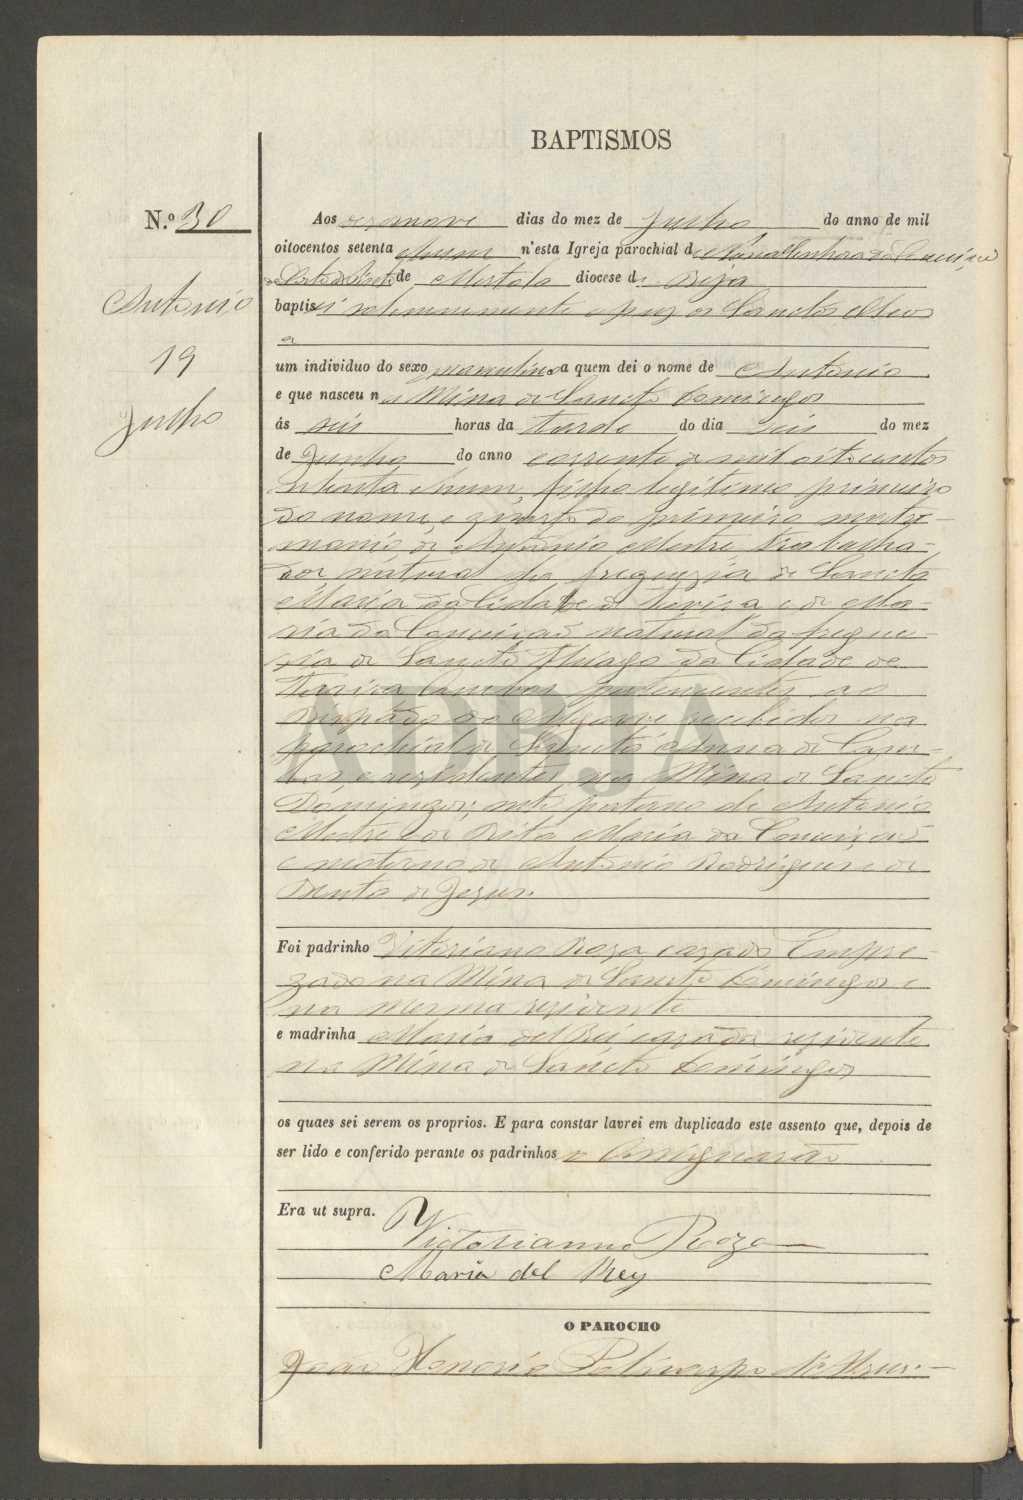 BAPTISMOS
N.º 30
Antonio
19
Junho
Aos dezanove dias do mez de Junho do anno de mil
oitocentos setenta e hum n'esta Igreja parochial de Nossa Senhora da Conceição
de Mertola diocese de Beja
baptisei solemnemente e puz os Sanctos Oleos
a
um individuo do sexo masculino a quem dei o nome de Antonio
e que nasceu na Mina de Sancto Domingos
ás seis horas da tarde do dia seis do mez
de Junho do anno corrente de mil oitocentos
setenta e hum, filho legitimo primeiro
do nome, e quarto do primeiro matri-
monio de Antonio Mestre Trabalha-
dor natural da freguezia de Sancta
Maria da Cidade de Tavira e de Ma-
ria da Conceição natural da fregue-
zia de Sancto Thiago da Cidade de
Tavira ambos pertencentes ao
Bispado do Algarve recebidos na
parochial de Sancta Anna de Cam-
bas, e rezidentes na Mina de Sancto
Domingos; neto paterno de Antonio
Mestre e de Rita Maria da Conceição
e materno de Antonio Rodrigues e de
de Jezus.
Foi padrinho Vitoriano Roza cazado Empre-
gado na Mina de Sancto Domingos e
na mesma rezidente
e madrinha Maria del Rei cazada rezidente
na Mina de Sancto Domingos
os quaes sei serem os proprios. E para constar lavrei em duplicado este assento que, depois de
ser lido e conferido perante os padrinhos o comigo assignarão
Era ut supra.
Victorianno Roza
Maria del Rey
O PAROCHO
João Honorio Policarpo
ADBJA